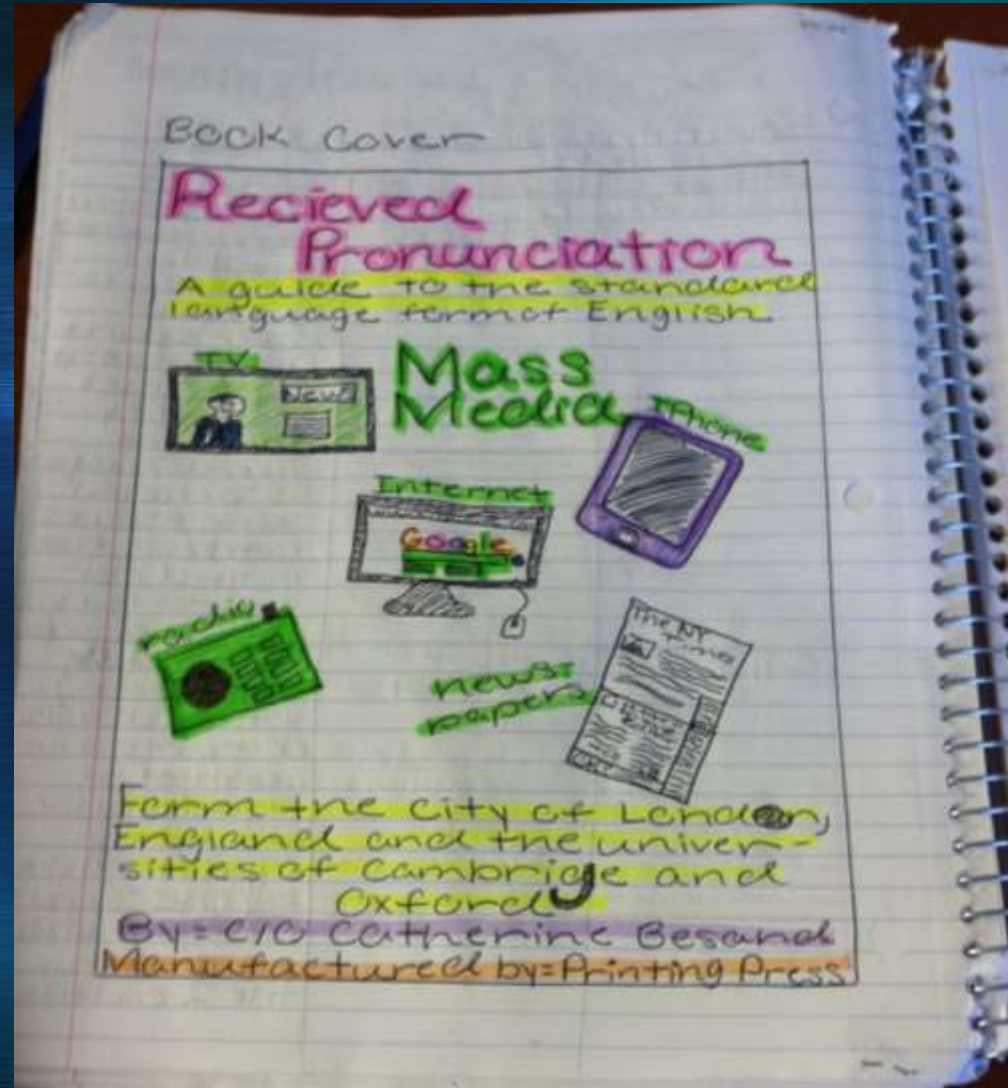 Book Cover
Recieved
Pronunciation
A guide to the standard
language form of English.
TV
News
Mass
Media
iPhone
Internet
Google
radio
The NY
Times
news-
papers
Form the city of London,
England and the univer-
sities of Cambrige and
Oxford
By= C/O Catherine Besand
Manufactured by=Printing Press